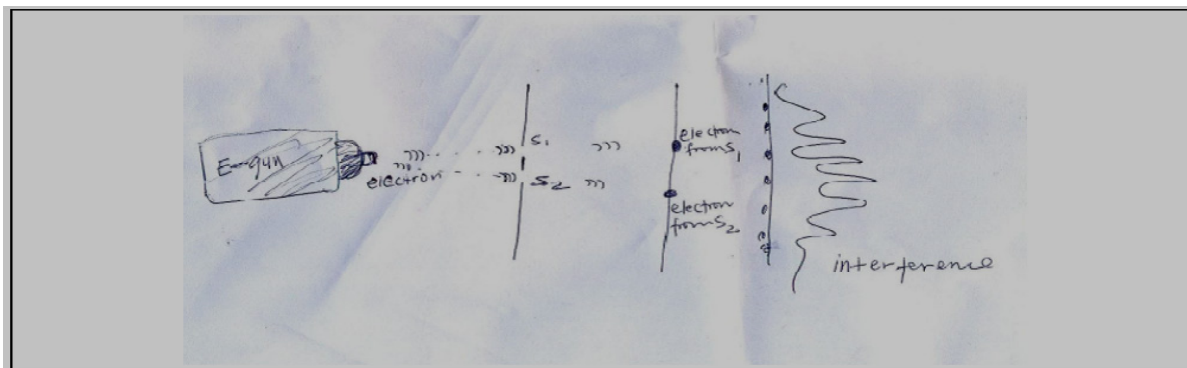 E-gun
electron
S1
S2
electron
from S1
electron
from S2
interference